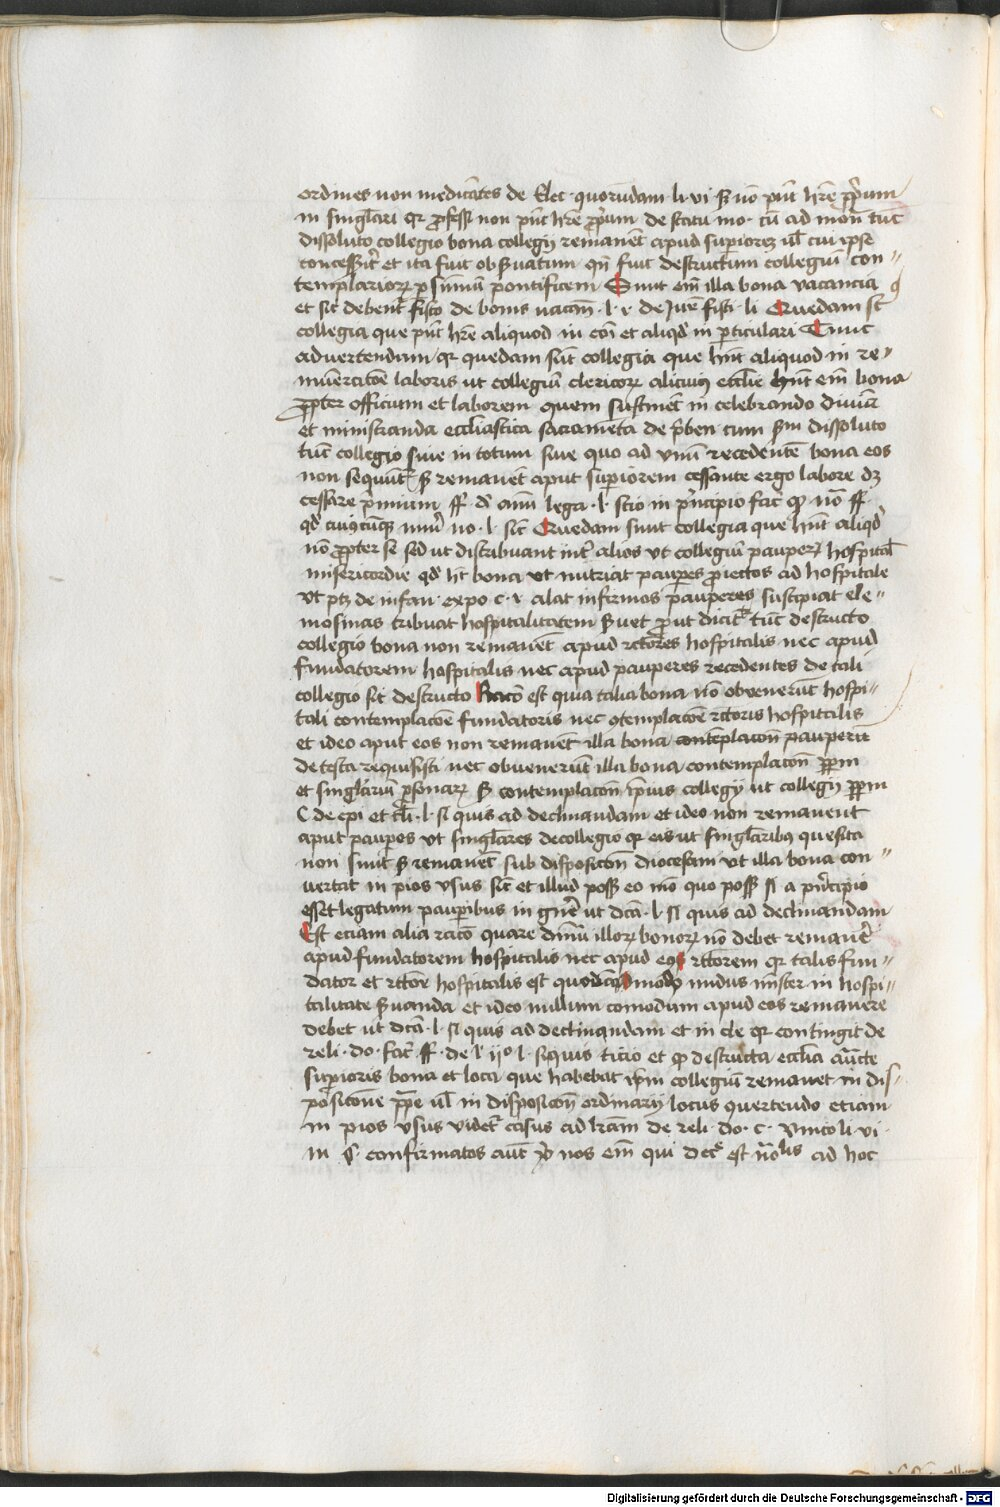 ordines non medicātes de Elec. quorundam. li. vi. S; nō pn̄t hr̄e ꝓp̄um
in singl'ari qr ꝓfessi non pn̄t hr̄e ꝓp̄um de statu mo. cū ad mon tūc
dissoluto collegio bona collegij remanēt apud sup̄iorez ul' cui ipse
concesserit et ita fuit obs̄uatum qn̄ fuit destructum collegiū con〃
templariorꝝ ꝑ sūmū pontificem Sunt em̄ illa bona vacancia
et sic debent' fisco de bonis uacan. l. i. de Jure fisci. li Quedam st̄
collegia que pn̄t hr̄e aliquod in cōi et aliqd' in ꝑticulari Tunc
advertendum qr quedam sūt collegia que hn̄t aliquod in re〃
muneracōe laboris ut collegiū clericorꝝ alicuiꝰ eccl'ie hn̄t em̄ bona
ꝓpter officium et laborem quem sustinēt in celebrando divinā
et ministranda eccl'iastica sacramēta de p̄ben. cum s̄m dissoluto
tūc collegio siue in totum siue quo ad vnū recedentē bona eos
non sequūt' s; remanēt aput sup̄iorem cessante ergo labore dz
cessare p̄mium ff. d' ann. lega. l. stio in p̄ncipio fac' qd nō ff.
qd' cuiꝰcūqꝫ univ' no. l. sic' Quedam sunt collegia que hn̄t aliqd'
nō ꝓpter se sed ut distribuant int' alios vt collegiū pauperꝝ hospital'
misericordie qd' ht bona ut nutriat paupes ꝓiectos ad hospitale
vt ptꝫ de infan. expo c. i. alat infirmos pauperes suscipiat ele〃
mosinas tribuat hospitalitatem s̄uet ꝓut dicit' tūc destructo
collegio bona non remanēt apud rc̄tores hospitalis nec apud
fundatorem hospitalis nec apud pauperes recedentes de tali
collegio sic destructo Racō est quia talia bona nō obvenerūt hospi〃
tali contemplacōe fundatoris nec ꝯtemplacōe rc̄toris hospitalis
et ideo aput eos non remanēt illa bona contēplacōn pauperū
de testa requisisti nec obvenerūt illa bona contemplacōn ꝓp̄m
et singlarū ꝑsonarꝝ S; contemplacōn ip̄ius collegij ut collegij ꝓp̄m
C de epi et cl'i. l. si quis ad declinandam et ideo non remanent
aput paupes vt singl'ares de collegio qr eis ut singl'aribꝰ quesita
non sunt s; remanēt sub disposicōn diocesani ut illa bona con〃
vertat in pios vsus sic' et illud posꝫ eo mō quo posꝫ si a p̄ncipio
esset legatum paup̄ibus in gn̄e ut dc̄a. l. si quis ad declinandam
Est etiam alia racō quare dn̄iū illorꝝ bonorꝝ nō debet remanē
apud fundatorem hospitalis nec apud eoꝝ rc̄torem qr talis fun〃
dator et rc̄tor hospitalis est quodāmodo nudus mīster in hospi〃
talitate s̄uanda et ideo nullum comodum apud eos remanere
debet ut dc̄a. l. si quis ad declinandam et in cle qr contingit de
reli. do. fac' ff. de l' ijº l. siquis titio et qd destructa eccl'ia auctē
sup̄ioris bona et loca que habebat ip̄m collegiū remanet in dis〃
posicone ꝑpe ul' in disposicōn ordinarij locus ꝯuertendo etiam
in pios vsus videt' casus ad lr̄am de reli. do. c. vnico li. vi.
in §. confirmatos aut' ꝟ nos em̄ qui dec' est n̄olis ad hoc
Digitalisierung gefördert durch die Deutsche Forschungsgemeinschaft - DFG